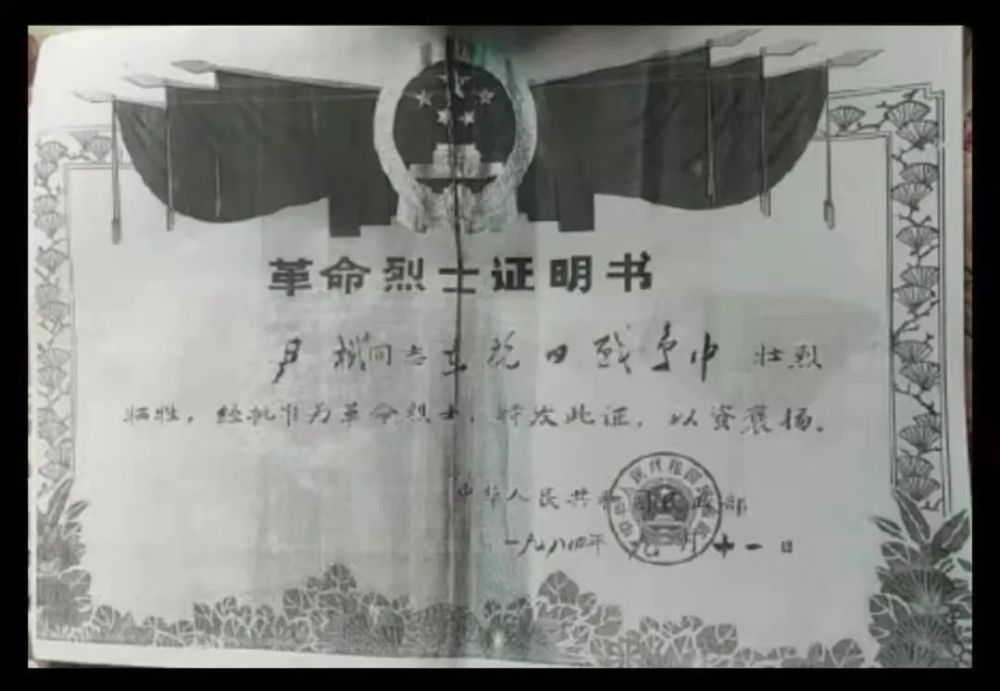 革命烈士证明书
尹 同志在抗日战争中 壮烈
牺牲，经批准为革命烈士，特发此证，以资褒扬。
中华人民共和国民政部
一九八四年九月十一日